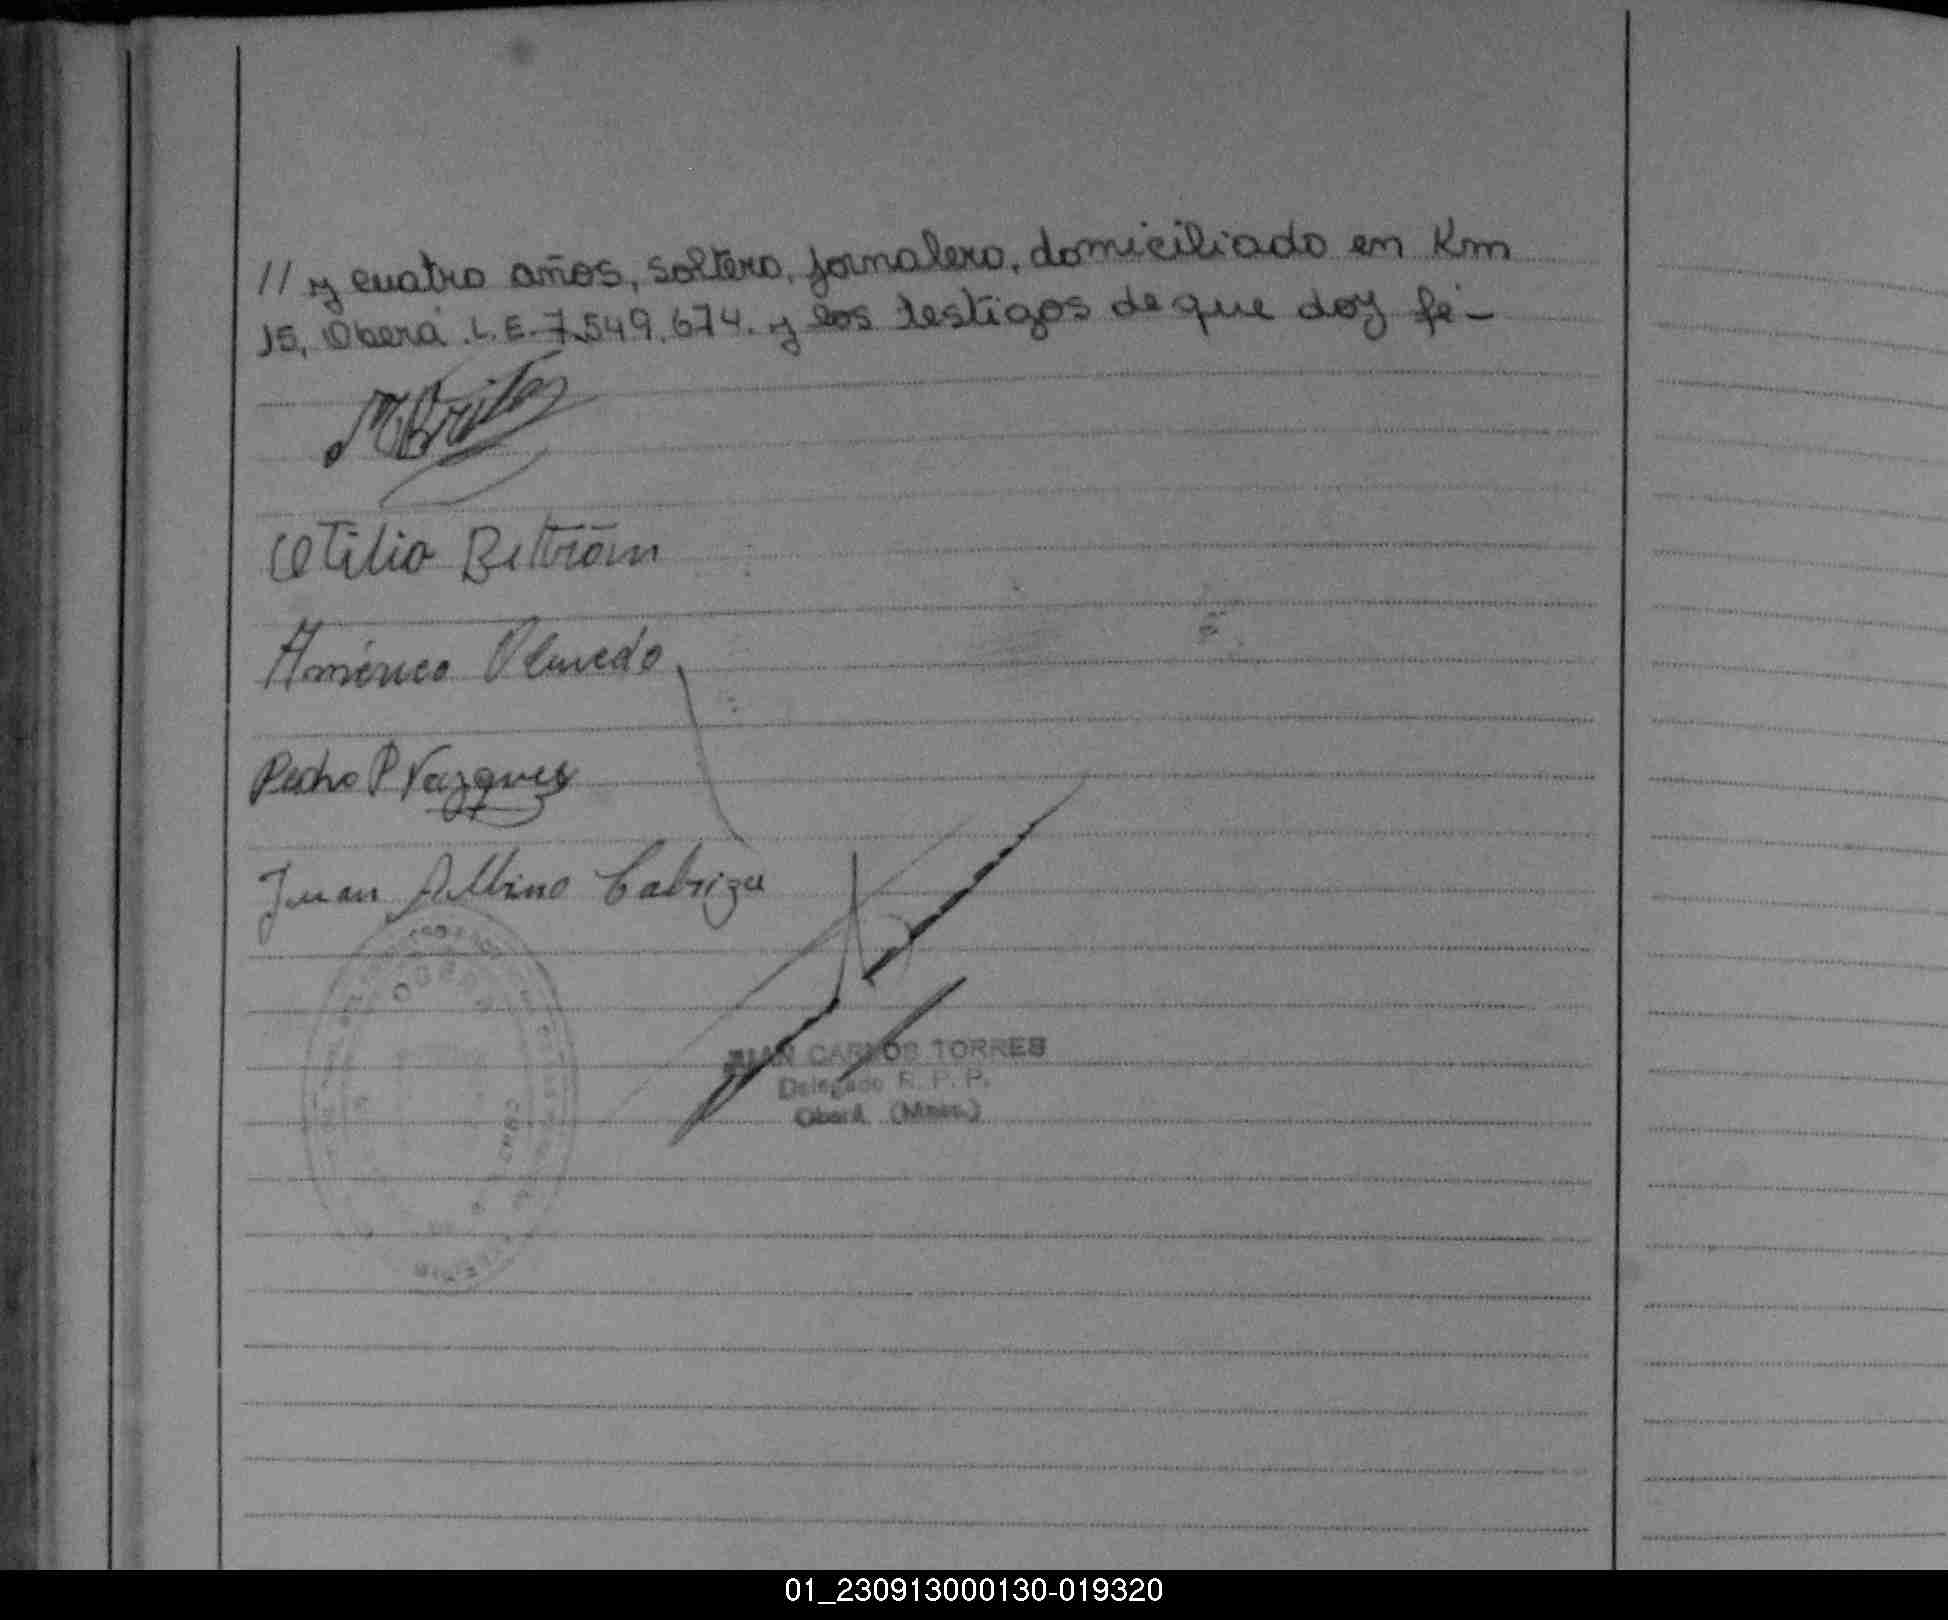 // y cuatro años, soltero, jornalero, domiciliado en Km
15, Oberá. L.E. 7.549.674. y los testigos de que doy fé-
Otilio Beltrán
Américo Olmedo
Pedro P Vazques
Juan Albino Cabriza
JUAN CARLOS TORRES
Delegado R. P. P.
Oberá (Mnes.)
OBERA
01_230913000130-019320